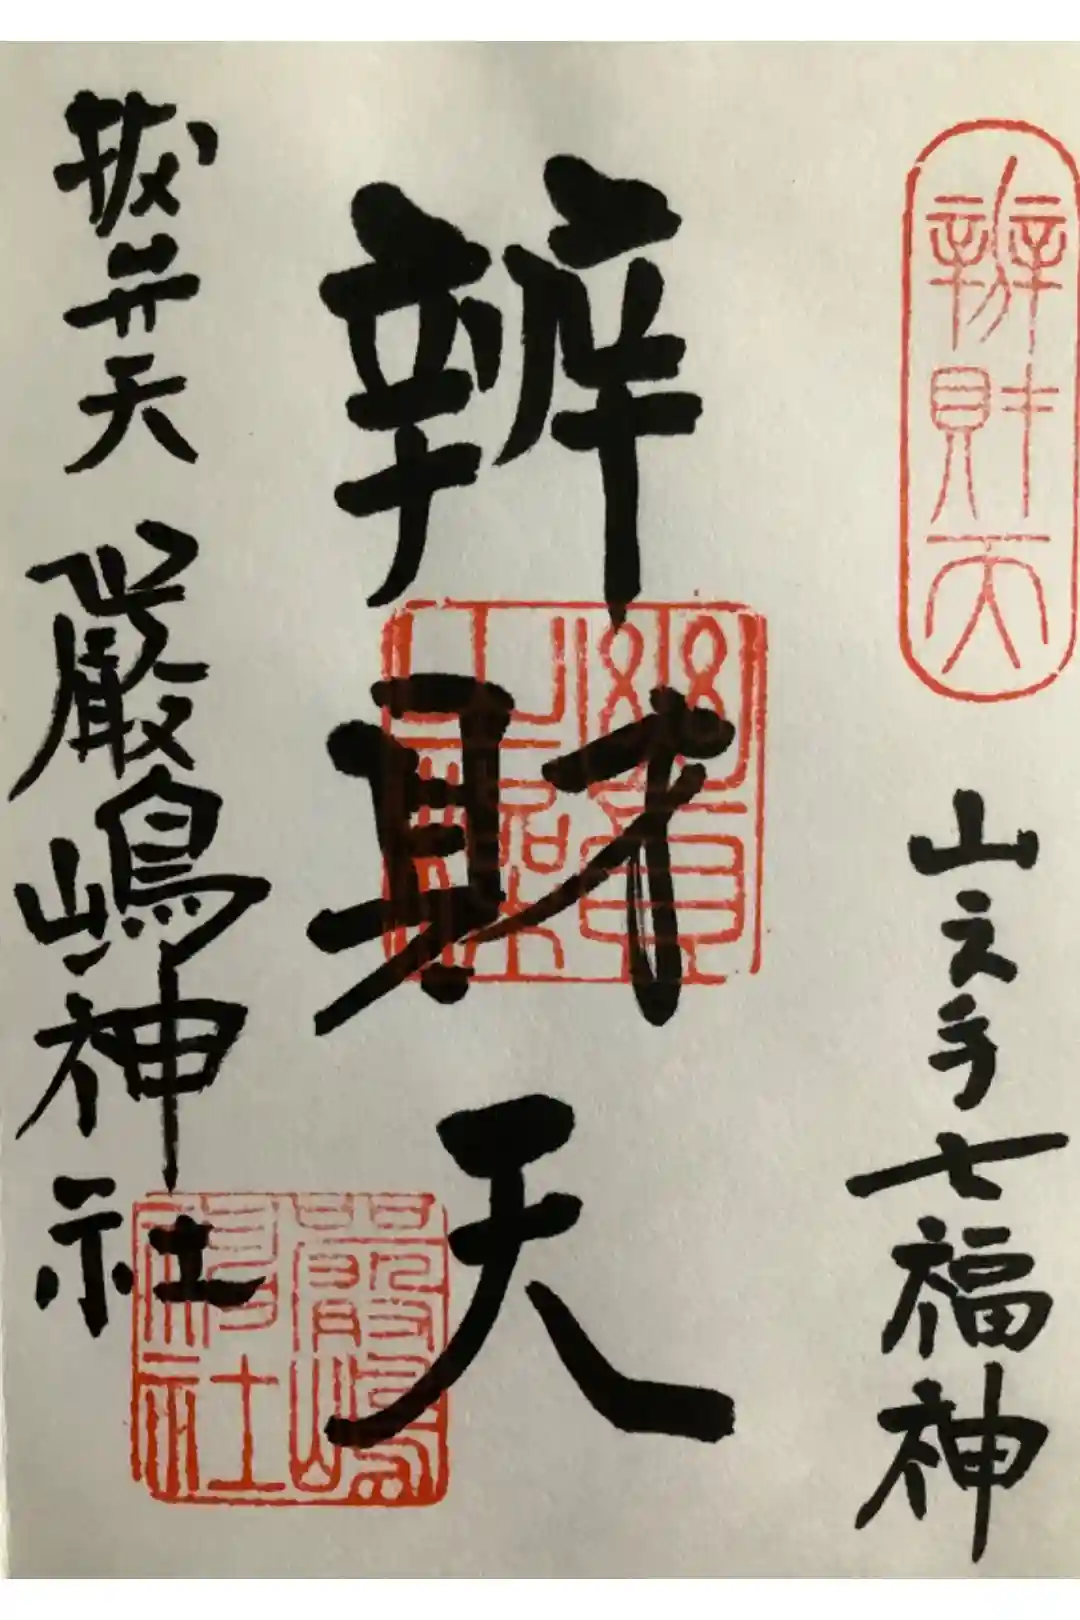 辨財天
山之手七福神
辨財天
抜弁天 嚴嶋神社
嚴嶋神社